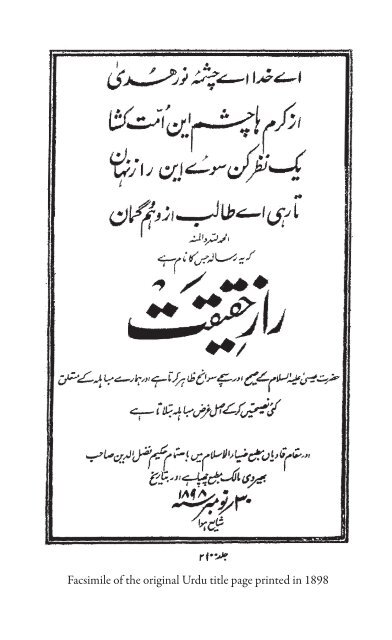 اے خدا اے چشمۂ نور ھدیٰ
از کرم ہا چشم این اُمّت کشا
یک نظر کن سوئے این راز نہان
تا رہی اے طالب از وہم گمان
الحمد للہ والمنہ
کہ یہ رسالہ جس کا نام ہے
راز حقیقت
حضرت عیسیٰ علیہ السلام کے صحیح اور سچے سوانح ظاہر کرتا ہے اور ہمارے مباہلہ کے متعلق
کئی نصیحتیں کر کے اصل غرض مباہلہ بتلاتا ہے
اور مقام قادیاں مطبع ضیاء الاسلام میں باہتمام حکیم فضل الدین صاحب
بھیروی مالک مطبع چھپا ہے اور بتاریخ
۳۰ نومبر ۱۸۹۸
شایع ہوا
جلد ۲۹۰۰
Facsimile of the original Urdu title page printed in 1898